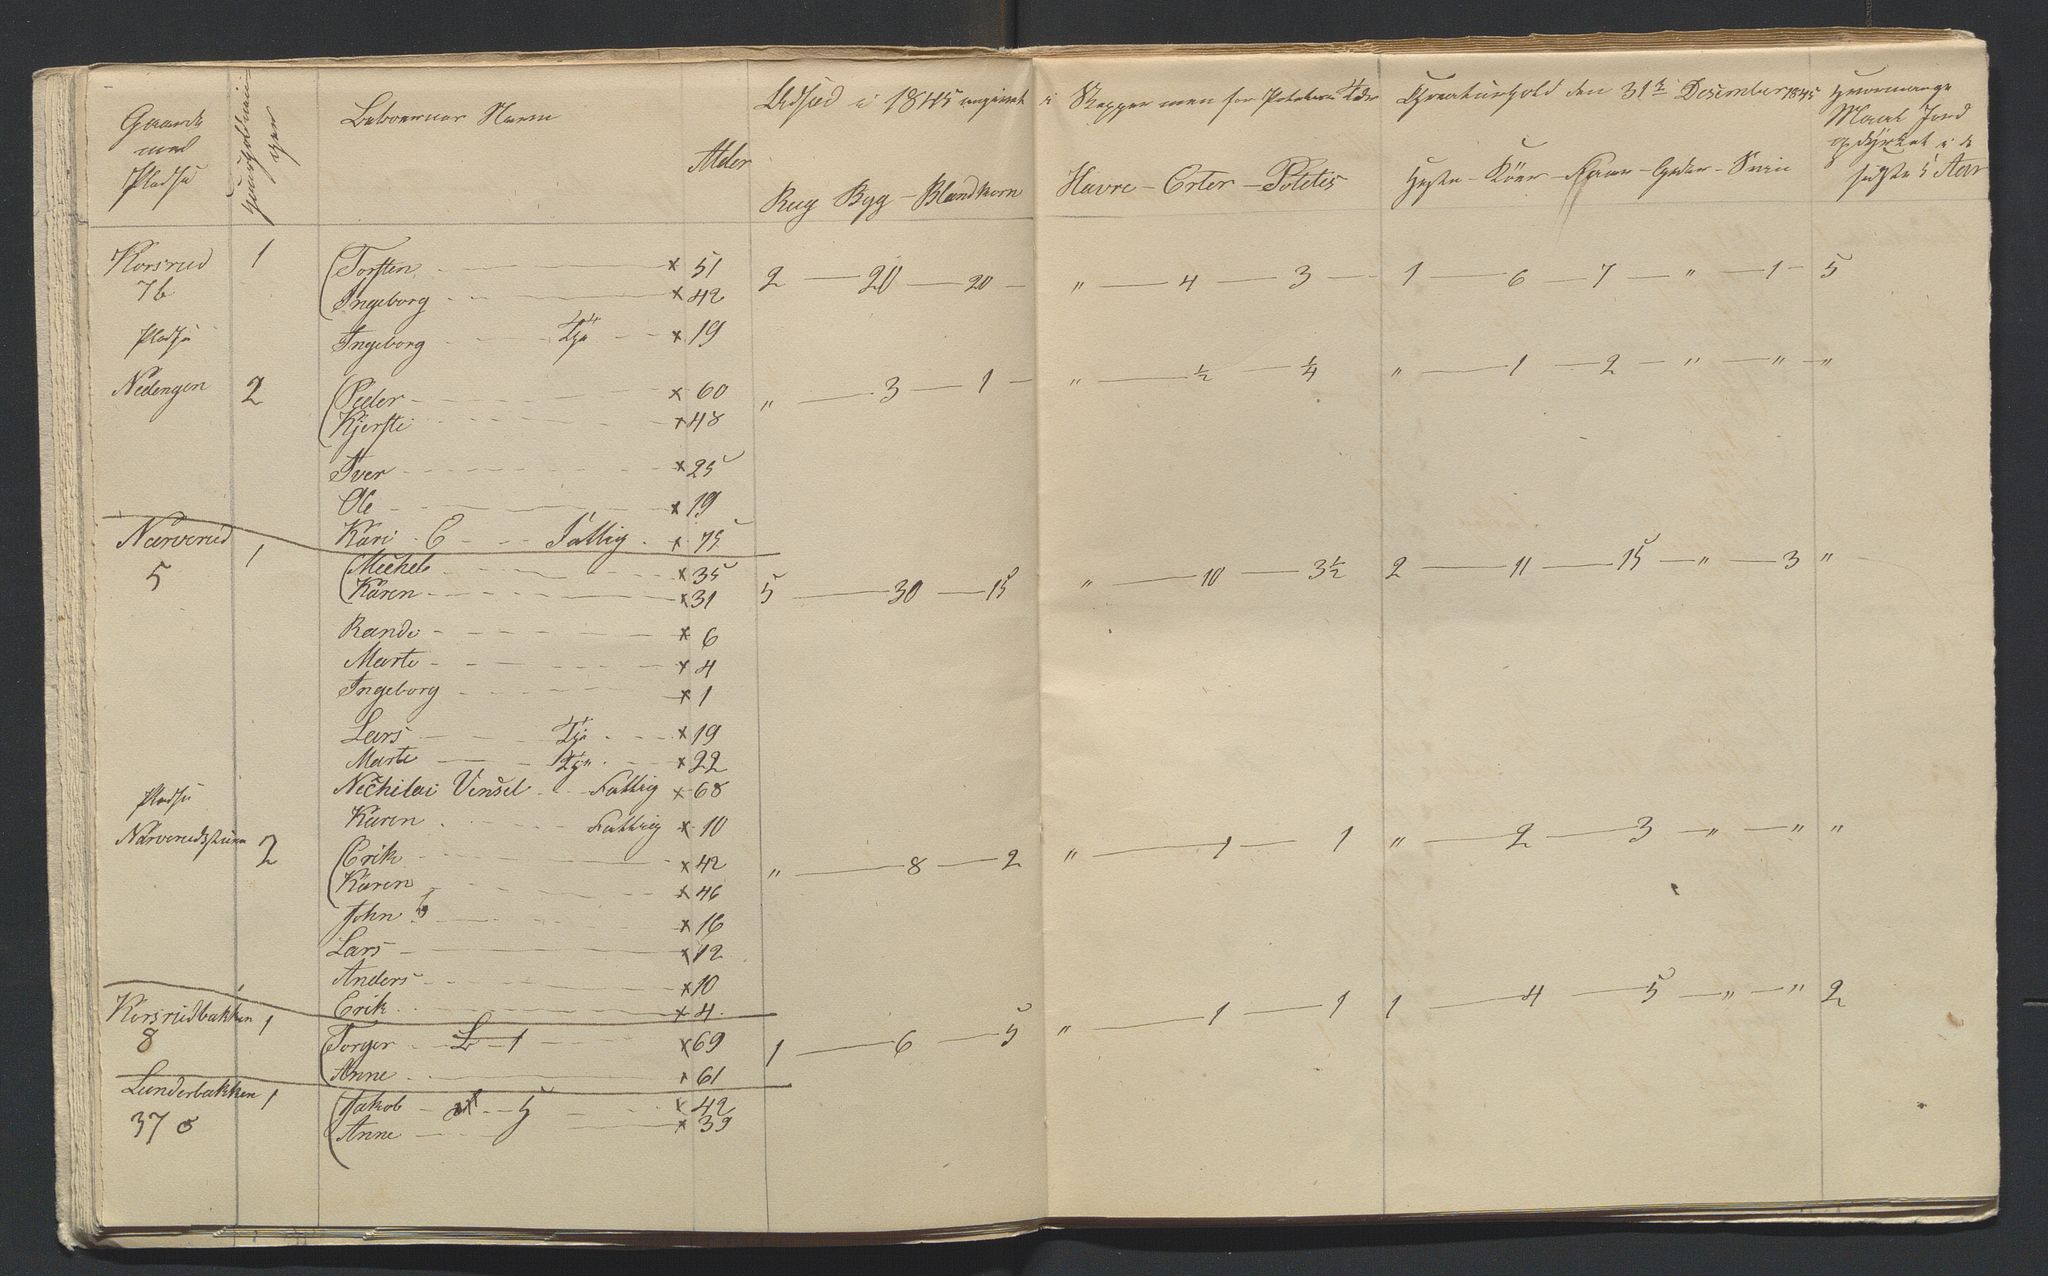 Gaarde med Pladse Huusholdninger Beboernes Navn Alder Udsæd i 1845 angivet i Skepper men for Poteters Tdr Creaturhold den 31te Desember 1845 Hvormange Maal Jord opdyrket i de sidste 5 Aar
Rug Byg - Blandkorn Havre - Erter - Potetes Heste - Köer - Faar - Geder - Sviin
Korsrud 1 Torsten x 51 2 20 20 " 4 3 1 6 7 " 1 5
7b Ingeborg x 42
Pladse Ingeborg Tje x 19
Nedengen 2 Peder x 60 " 3 1 " ½ ¼ " 1 2 " " "
Kjersti x 48
Iver x 25
Ole x 19
Kari E Fattig x 75
Narverud 1 Mickel x 35 5 30 15 " 10 3½ 2 11 15 " 3 "
5 Karen x 31
Rande x 6
Marte x 4
Ingeborg x 1
Lars Tje x 19
Marte Tje x 22
Nechilai Vensel Fattig x 68
Pladse Karen Fattig x 10
Narverudsstuen 2 Erik x 42 " 8 2 " 1 1 " 2 3 " " "
Karen x 46
John x 16
Lars x 12
Anders x 10
Erik x 4
Korsrudbakken 1 Torger L 1 x 69 1 6 5 " 1 1 1 4 5 " " 2
8 Anne x 61
Lunderbakken 1 Jakob x 42
37 Anne x 39